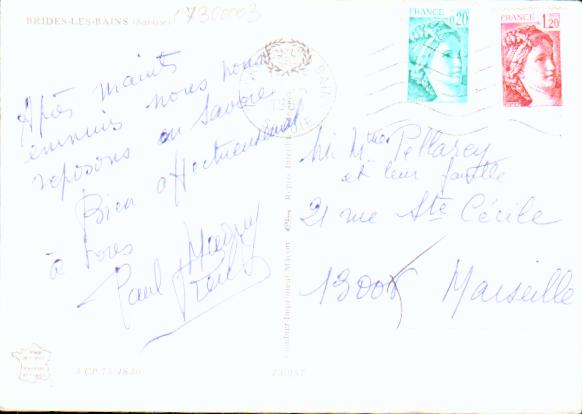 BRIDES-LES-BAINS (Savoie)
7300003
FRANCE
0,20
FRANCE
1,20
Après maints
ennuis nous nous
reposons en Savoie
Bien affectueusement
à tous
Paul
M. Mme Pellarey
et leur famille
21 rue Ste Cécile
13005 Marseille
Combier Imprimeur Mâcon
73-057